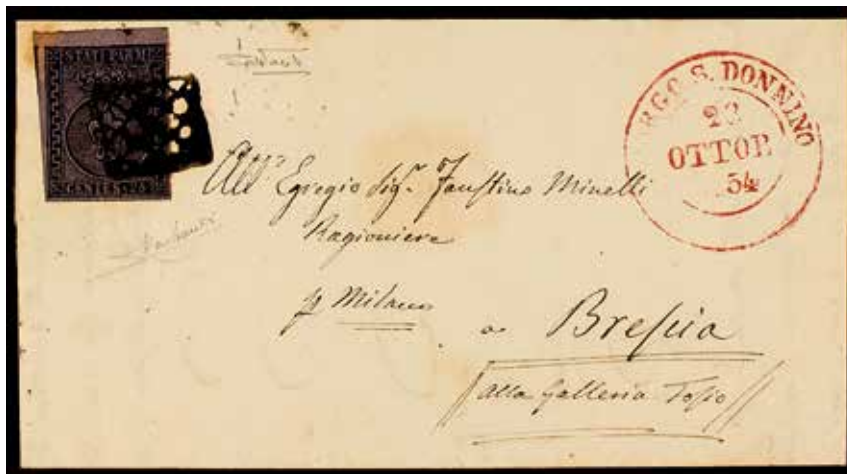 STATI PARM
CENTES. 25
BORGO S. DONNINO
22
OTTOB.
54
All' Egregio Sigr. Faustino Minelli
Ragioniere
p Milano
a Breſcia
alla Galleria Tosio